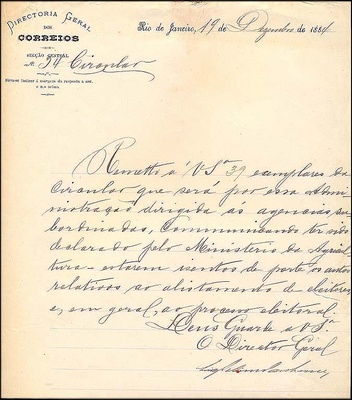 DIRECTORIA GERAL
DOS
CORREIOS
SECÇÃO CENTRAL
Nº 54 Circular
Rio de Janeiro, 19 de Dezembro de 1884
Remetto á V Sª 39 exemplares da
circular que será por essa Admi-
nistração dirigida ás agencias su-
bordinadas, communicando ter sido
declarado pelo Ministerio da Agricul-
tura - estarem isentos de porte os autos
relativos ao alistamento de eleitores
e, em geral, ao processo eleitoral.
Deus Guarde a V Sª.
O Director Geral